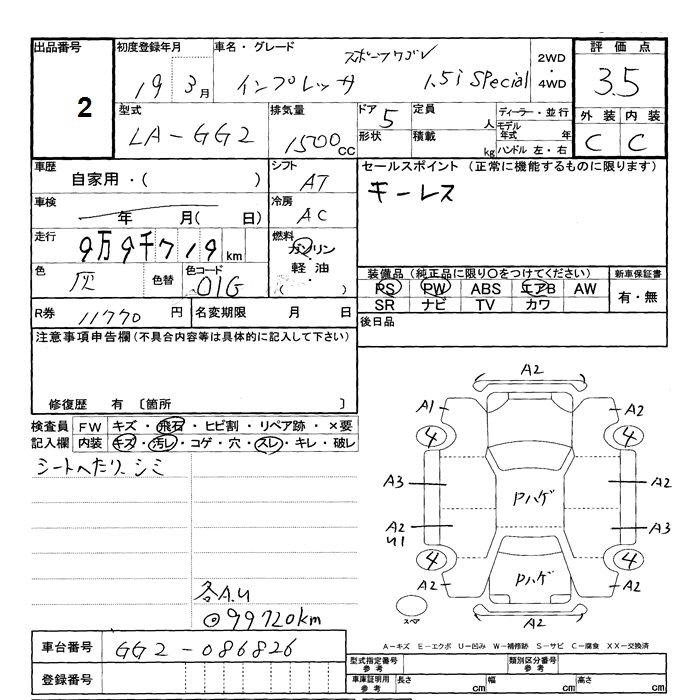 出品番号 初度登録年月 車名・グレード 評価点
2 19 3月 インプレッサ スポーツワゴン 1.5i Special 2WD・4WD 3.5
型式 排気量 ドア 5 定員 人 ディーラー・並行 外装 内装
LA-GG2 1500cc 形状 積載 kg モデル年式 年 C C
ハンドル 左・右
車歴 自家用・( ) シフト AT セールスポイント (正常に機能するものに限ります)
車検 年 月( 日) 冷房 AC キーレス
走行 9万9千719km 燃料 ガソリン・軽油・( )
色 灰 色替 色コード 01G 装備品 (純正品に限り○をつけてください) 新車保証書
PS PW ABS エアB AW 有・無
SR ナビ TV カワ
R券 11770円 名変期限 月 日 後日品
注意事項申告欄 (不具合内容等は具体的に記入して下さい)
修復歴 有 〔箇所 〕
検査員 FW キズ・飛石・ヒビ割・リペア跡・×要
記入欄 内装 キズ・汚レ・コゲ・穴・スレ・キレ・破レ
シートへたり、シミ
A2
A1 A2
4 4
A3 A2
Pハゲ
A2 A3
U1
4 4
Pハゲ
A2 A2
A2
スペア
各A.U
◎99720km
A-キズ E-エクボ U-凹み W-補修跡 S-サビ C-腐食 XX-交換済
車台番号 GG2-086826
登録番号
型式指定番号 参考 類別区分番号 参考
車庫証明用 参考 長さ cm 幅 cm 高さ cm